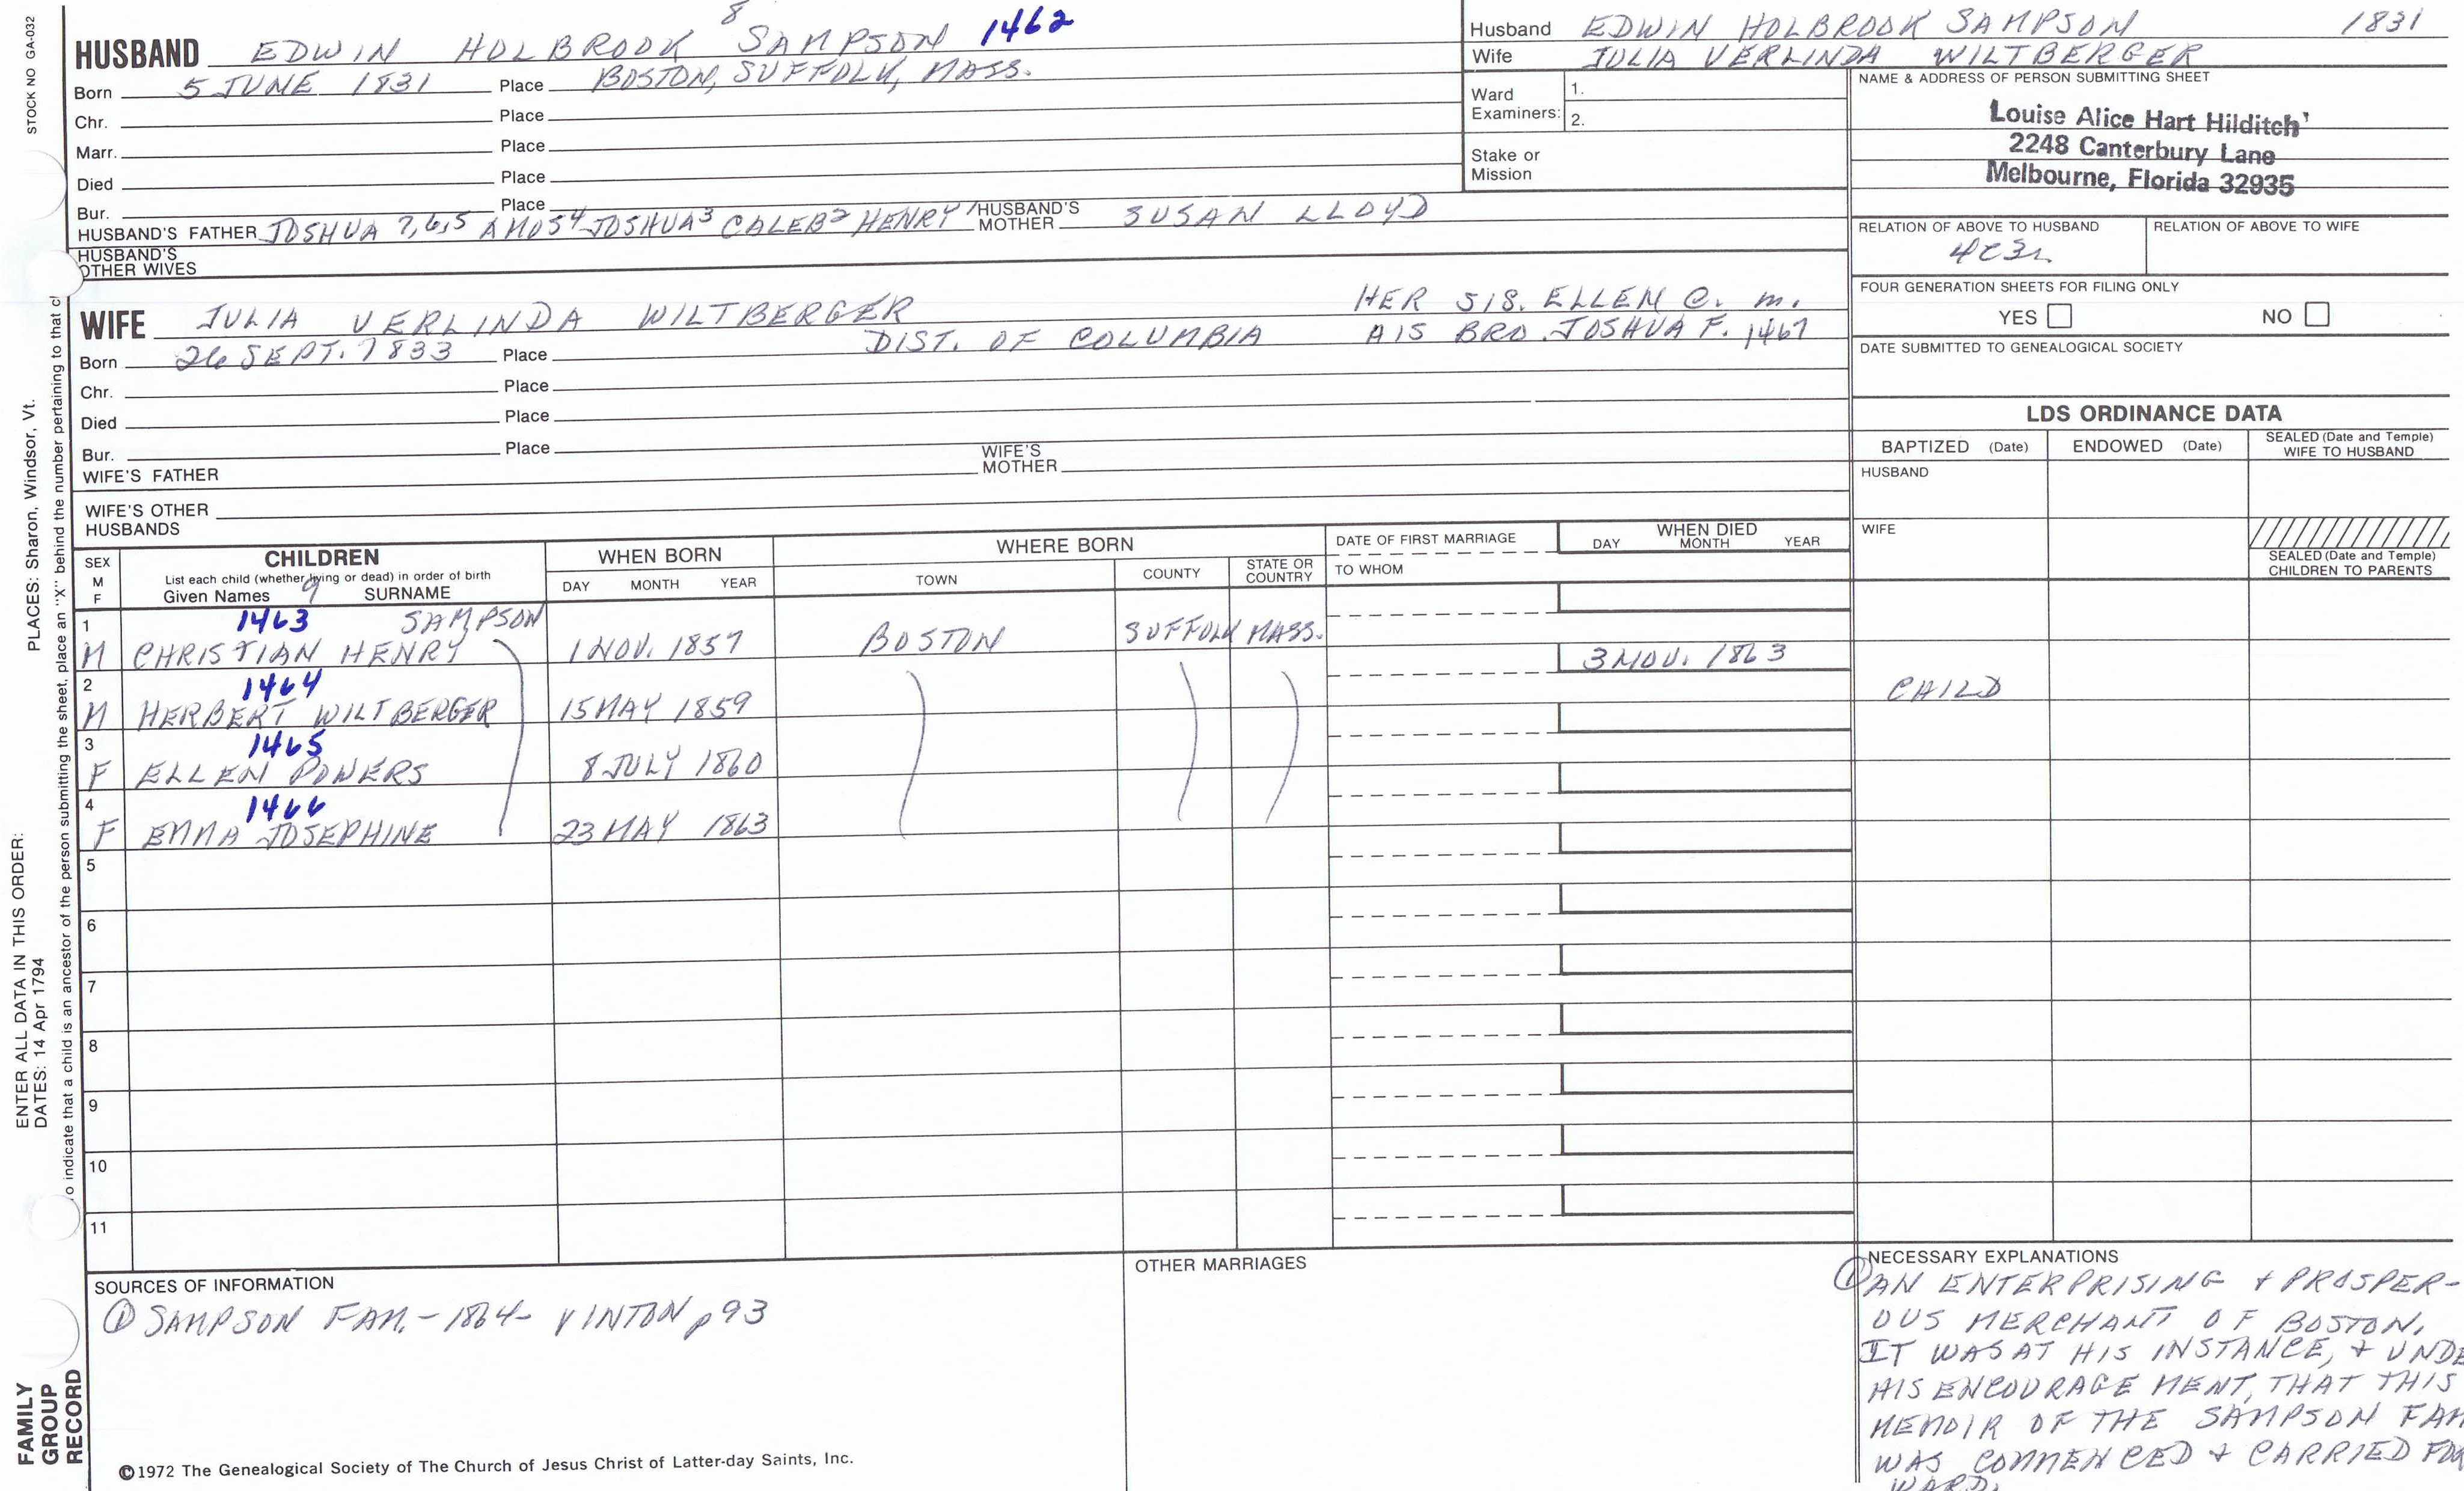 STOCK NO GA-032
8
HUSBAND EDWIN HOLBROOK SAMPSON 1462
Born 5 JUNE 1831 Place BOSTON, SUFFOLK, MASS.
Chr. Place
Marr. Place
Died Place
Bur. Place
HUSBAND'S FATHER JOSHUA 7,6,5 AMOS4 JOSHUA3 CALEB2 HENRY 1 HUSBAND'S MOTHER SUSAN LLOYD
HUSBAND'S OTHER WIVES
Husband EDWIN HOLBROOK SAMPSON 1831
Wife JULIA VERLINDA WILTBERGER
Ward Examiners: 1.
2.
Stake or Mission
NAME & ADDRESS OF PERSON SUBMITTING SHEET
Louise Alice Hart Hilditch
2248 Canterbury Lane
Melbourne, Florida 32935
RELATION OF ABOVE TO HUSBAND RELATION OF ABOVE TO WIFE
4C3R
FOUR GENERATION SHEETS FOR FILING ONLY
YES NO
DATE SUBMITTED TO GENEALOGICAL SOCIETY
WIFE JULIA VERLINDA WILTBERGER HER SIS. ELLEN C. m.
Born 26 SEPT. 1833 Place DIST. OF COLUMBIA HIS BRO. JOSHUA F. 1467
Chr. Place
Died Place
Bur. Place
WIFE'S FATHER WIFE'S MOTHER
WIFE'S OTHER HUSBANDS
LDS ORDINANCE DATA
BAPTIZED (Date) ENDOWED (Date) SEALED (Date and Temple) WIFE TO HUSBAND
HUSBAND
WIFE
SEALED (Date and Temple) CHILDREN TO PARENTS
SEX M F
CHILDREN
List each child (whether living or dead) in order of birth
Given Names 9 SURNAME
WHEN BORN
DAY MONTH YEAR
WHERE BORN
TOWN COUNTY STATE OR COUNTRY
DATE OF FIRST MARRIAGE
TO WHOM
WHEN DIED
DAY MONTH YEAR
1 1463 SAMPSON
M CHRISTIAN HENRY 1 NOV. 1857 BOSTON SUFFOLK MASS.
3 NOV. 1863
2 1464
M HERBERT WILTBERGER 15 MAY 1859 CHILD
3 1465
F ELLEN POWERS 8 JULY 1860
4 1466
F EMMA JOSEPHINE 23 MAY 1863
5
6
7
8
9
10
11
SOURCES OF INFORMATION
① SAMPSON FAM. - 1864 - VINTON p 93
OTHER MARRIAGES
NECESSARY EXPLANATIONS
① AN ENTERPRISING + PROSPER-
OUS MERCHANT OF BOSTON.
IT WAS AT HIS INSTANCE, + UNDE
HIS ENCOURAGEMENT, THAT THIS
MEMOIR OF THE SAMPSON FAM
WAS COMMENCED + CARRIED FOR
WARD.
©1972 The Genealogical Society of The Church of Jesus Christ of Latter-day Saints, Inc.
PLACES: Sharon, Windsor, Vt.
ENTER ALL DATA IN THIS ORDER:
DATES: 14 Apr 1794
o indicate that a child is an ancestor of the person submitting the sheet, place an "X" behind the number pertaining to that c
FAMILY
GROUP
RECORD